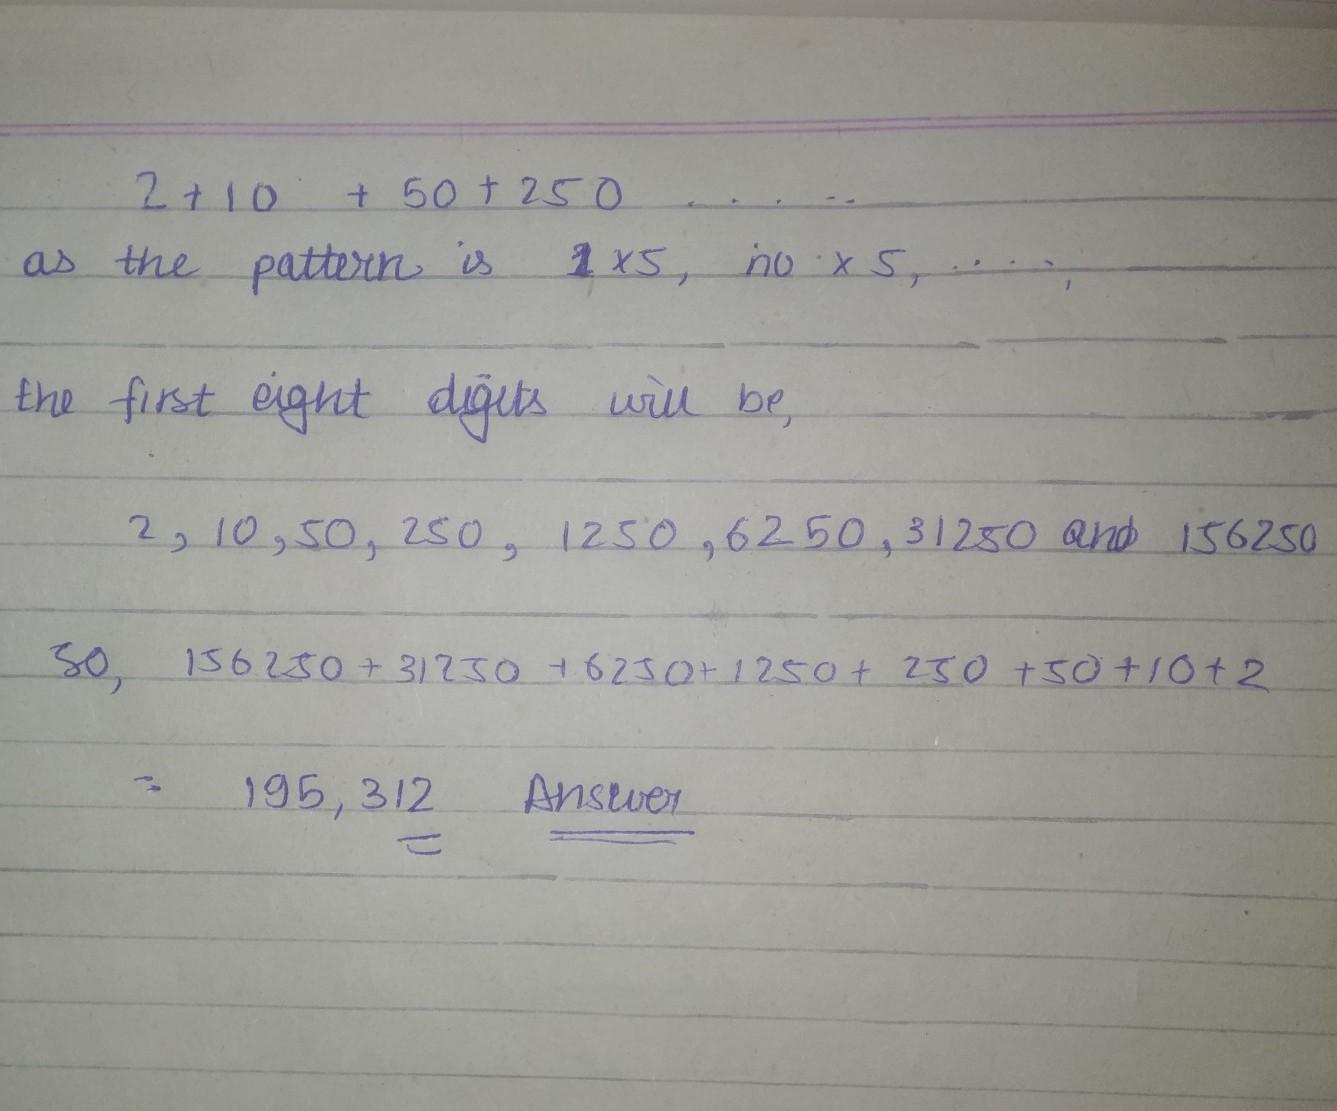 2 + 10 + 50 + 250 .....
as the pattern is 2 x 5, no x 5, ....,
the first eight digits will be,
2, 10, 50, 250, 1250, 6250, 31250 and 156250
So, 156250 + 31250 + 6250 + 1250 + 250 + 50 + 10 + 2
= 195,312 Answer